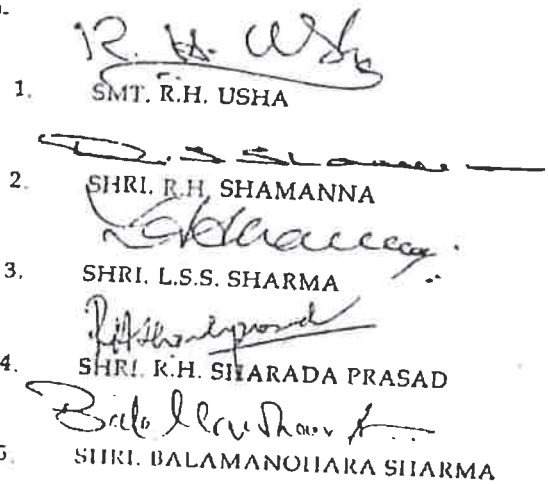 R. H. Usha
1. SMT. R.H. USHA
2. SHRI. R.H. SHAMANNA
3. SHRI. L.S.S. SHARMA
4. SHRI. R.H. SHARADA PRASAD
5. SHRI. BALAMANOHARA SHARMA